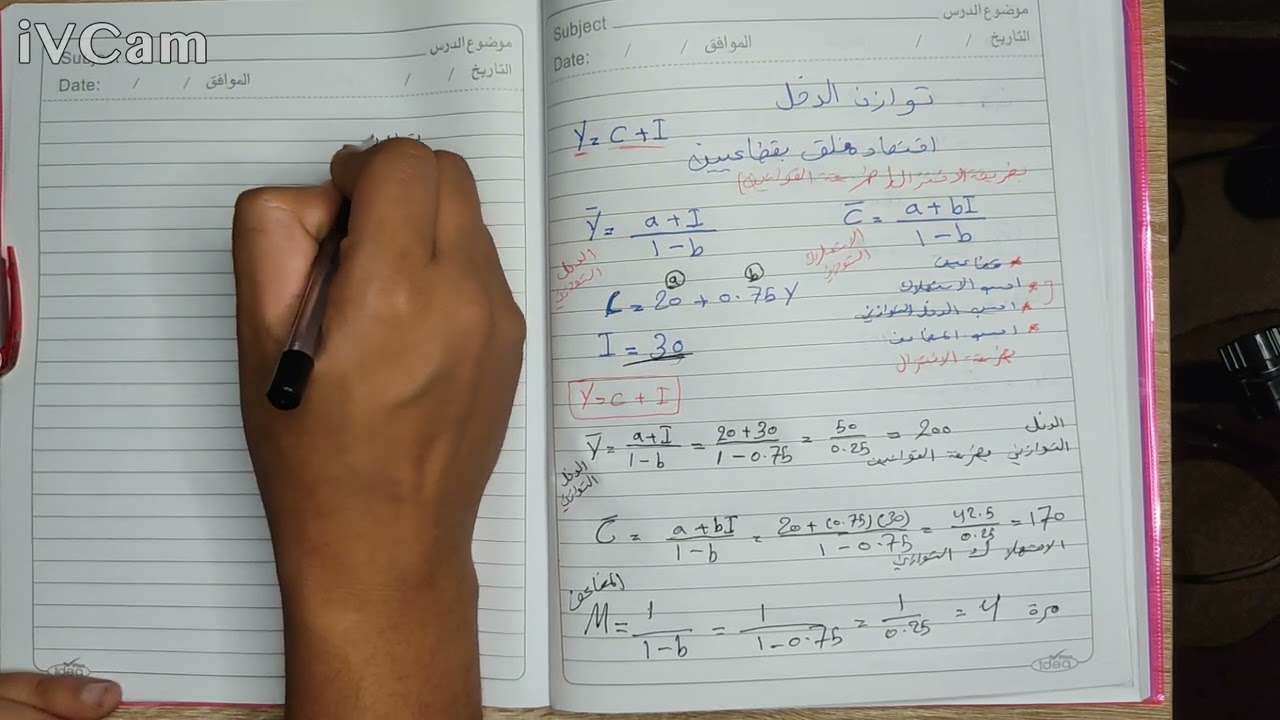 iVCam
موضوع الدرس
Date: / / الموافق / / التاريخ
Subject موضوع الدرس
Date: / / الموافق / / التاريخ
توازن الدخل
Y = C + I
اقتصاد مغلق بقطاعيين
Ȳ = a + I / 1 - b
C̄ = a + bI / 1 - b
الدخل التوازني
الاستهلاك التوازني
a b
C = 20 + 0.75 Y
I = 30
* قطاعين
* احسب الاستهلاك
* احسب الدخل التوازني
* احسب المضاعف
بطريقة الاختزال
Y = C + I
Ȳ = a + I / 1 - b = 20 + 30 / 1 - 0.75 = 50 / 0.25 = 200
الدخل التوازني بطريقة القوانين
الدخل التوازني
C̄ = a + bI / 1 - b = 20 + (0.75)(30) / 1 - 0.75 = 42.5 / 0.25 = 170
الاستهلاك التوازني
المضاعف
M = 1 / 1 - b = 1 / 1 - 0.75 = 1 / 0.25 = 4 مرة
idea
idea